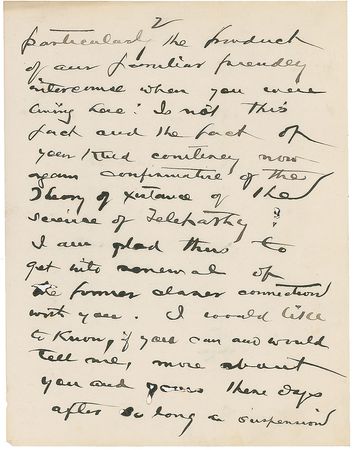 2
particularly the product
of our familiar friendly
intercourse when you were
living here! Is not this
fact and the fact of
your kind courtesy now
again confirmative of the
Theory of Xistance of the
science of Telepathy?
I am glad thus to
get into renewal of
the former closer connection
with you. I would like
to know, if you can and would
tell me, more about
you and yours these days
after so long a suspension